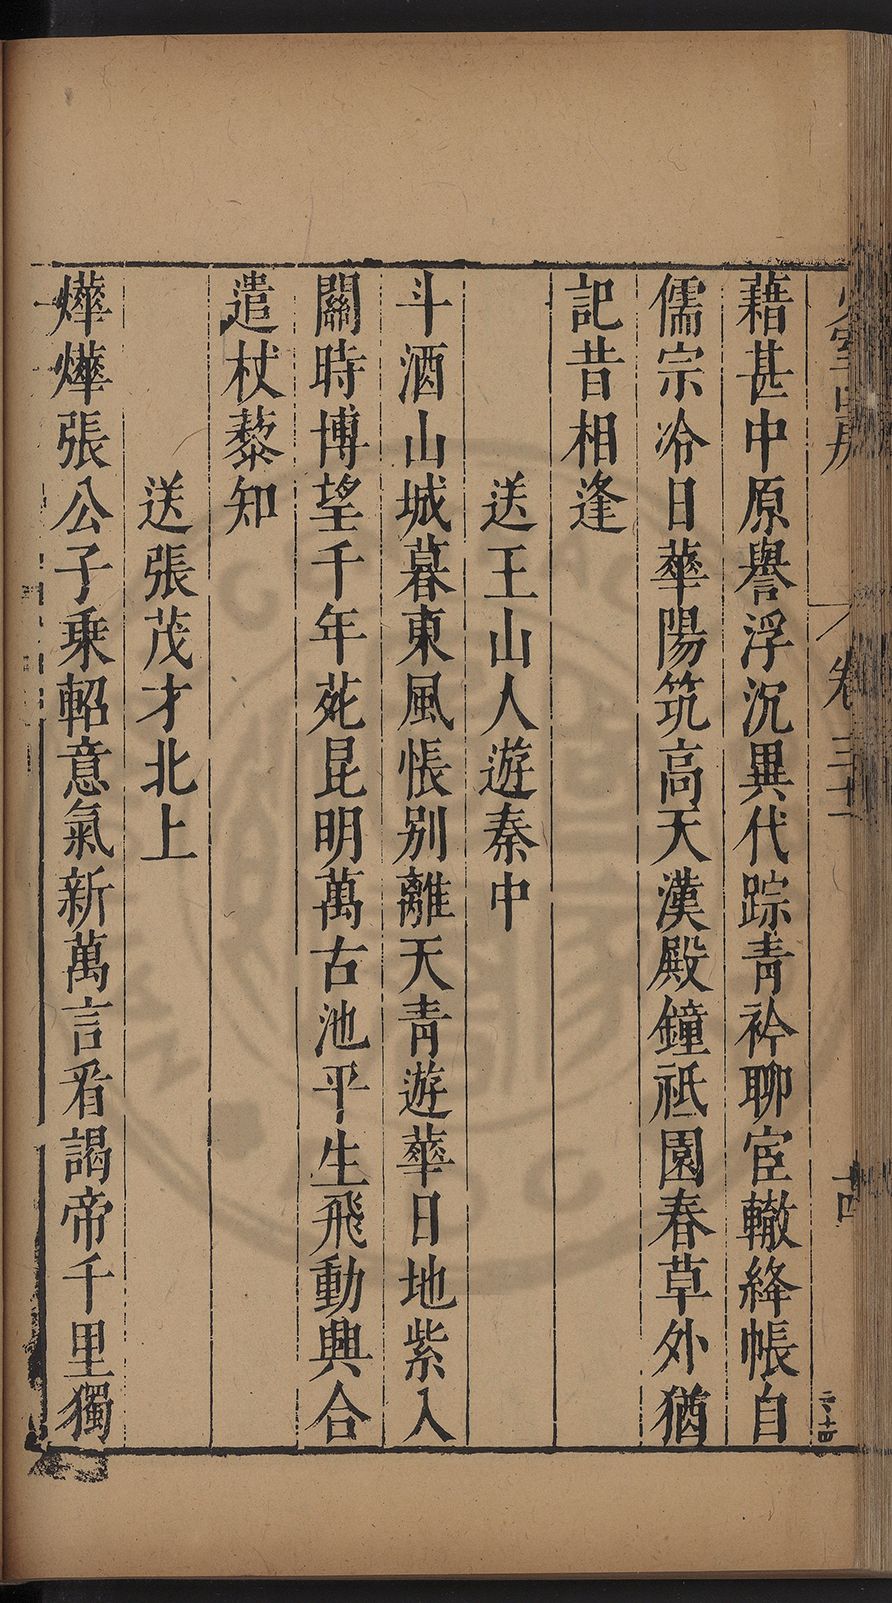 少室山房 卷三十 十四
藉甚中原譽浮沉異代踪青衿聊宦轍絳帳自
儒宗冷日華陽筑高天漢殿鐘祗園春草外猶
記昔相逢
送王山人遊秦中
斗酒山城暮東風悵别離天青遊華日地紫入
關時博望千年苑昆明萬古池平生飛動興合
遣杖藜知
送張茂才北上
燁燁張公子乘軺意氣新萬言看謁帝千里獨